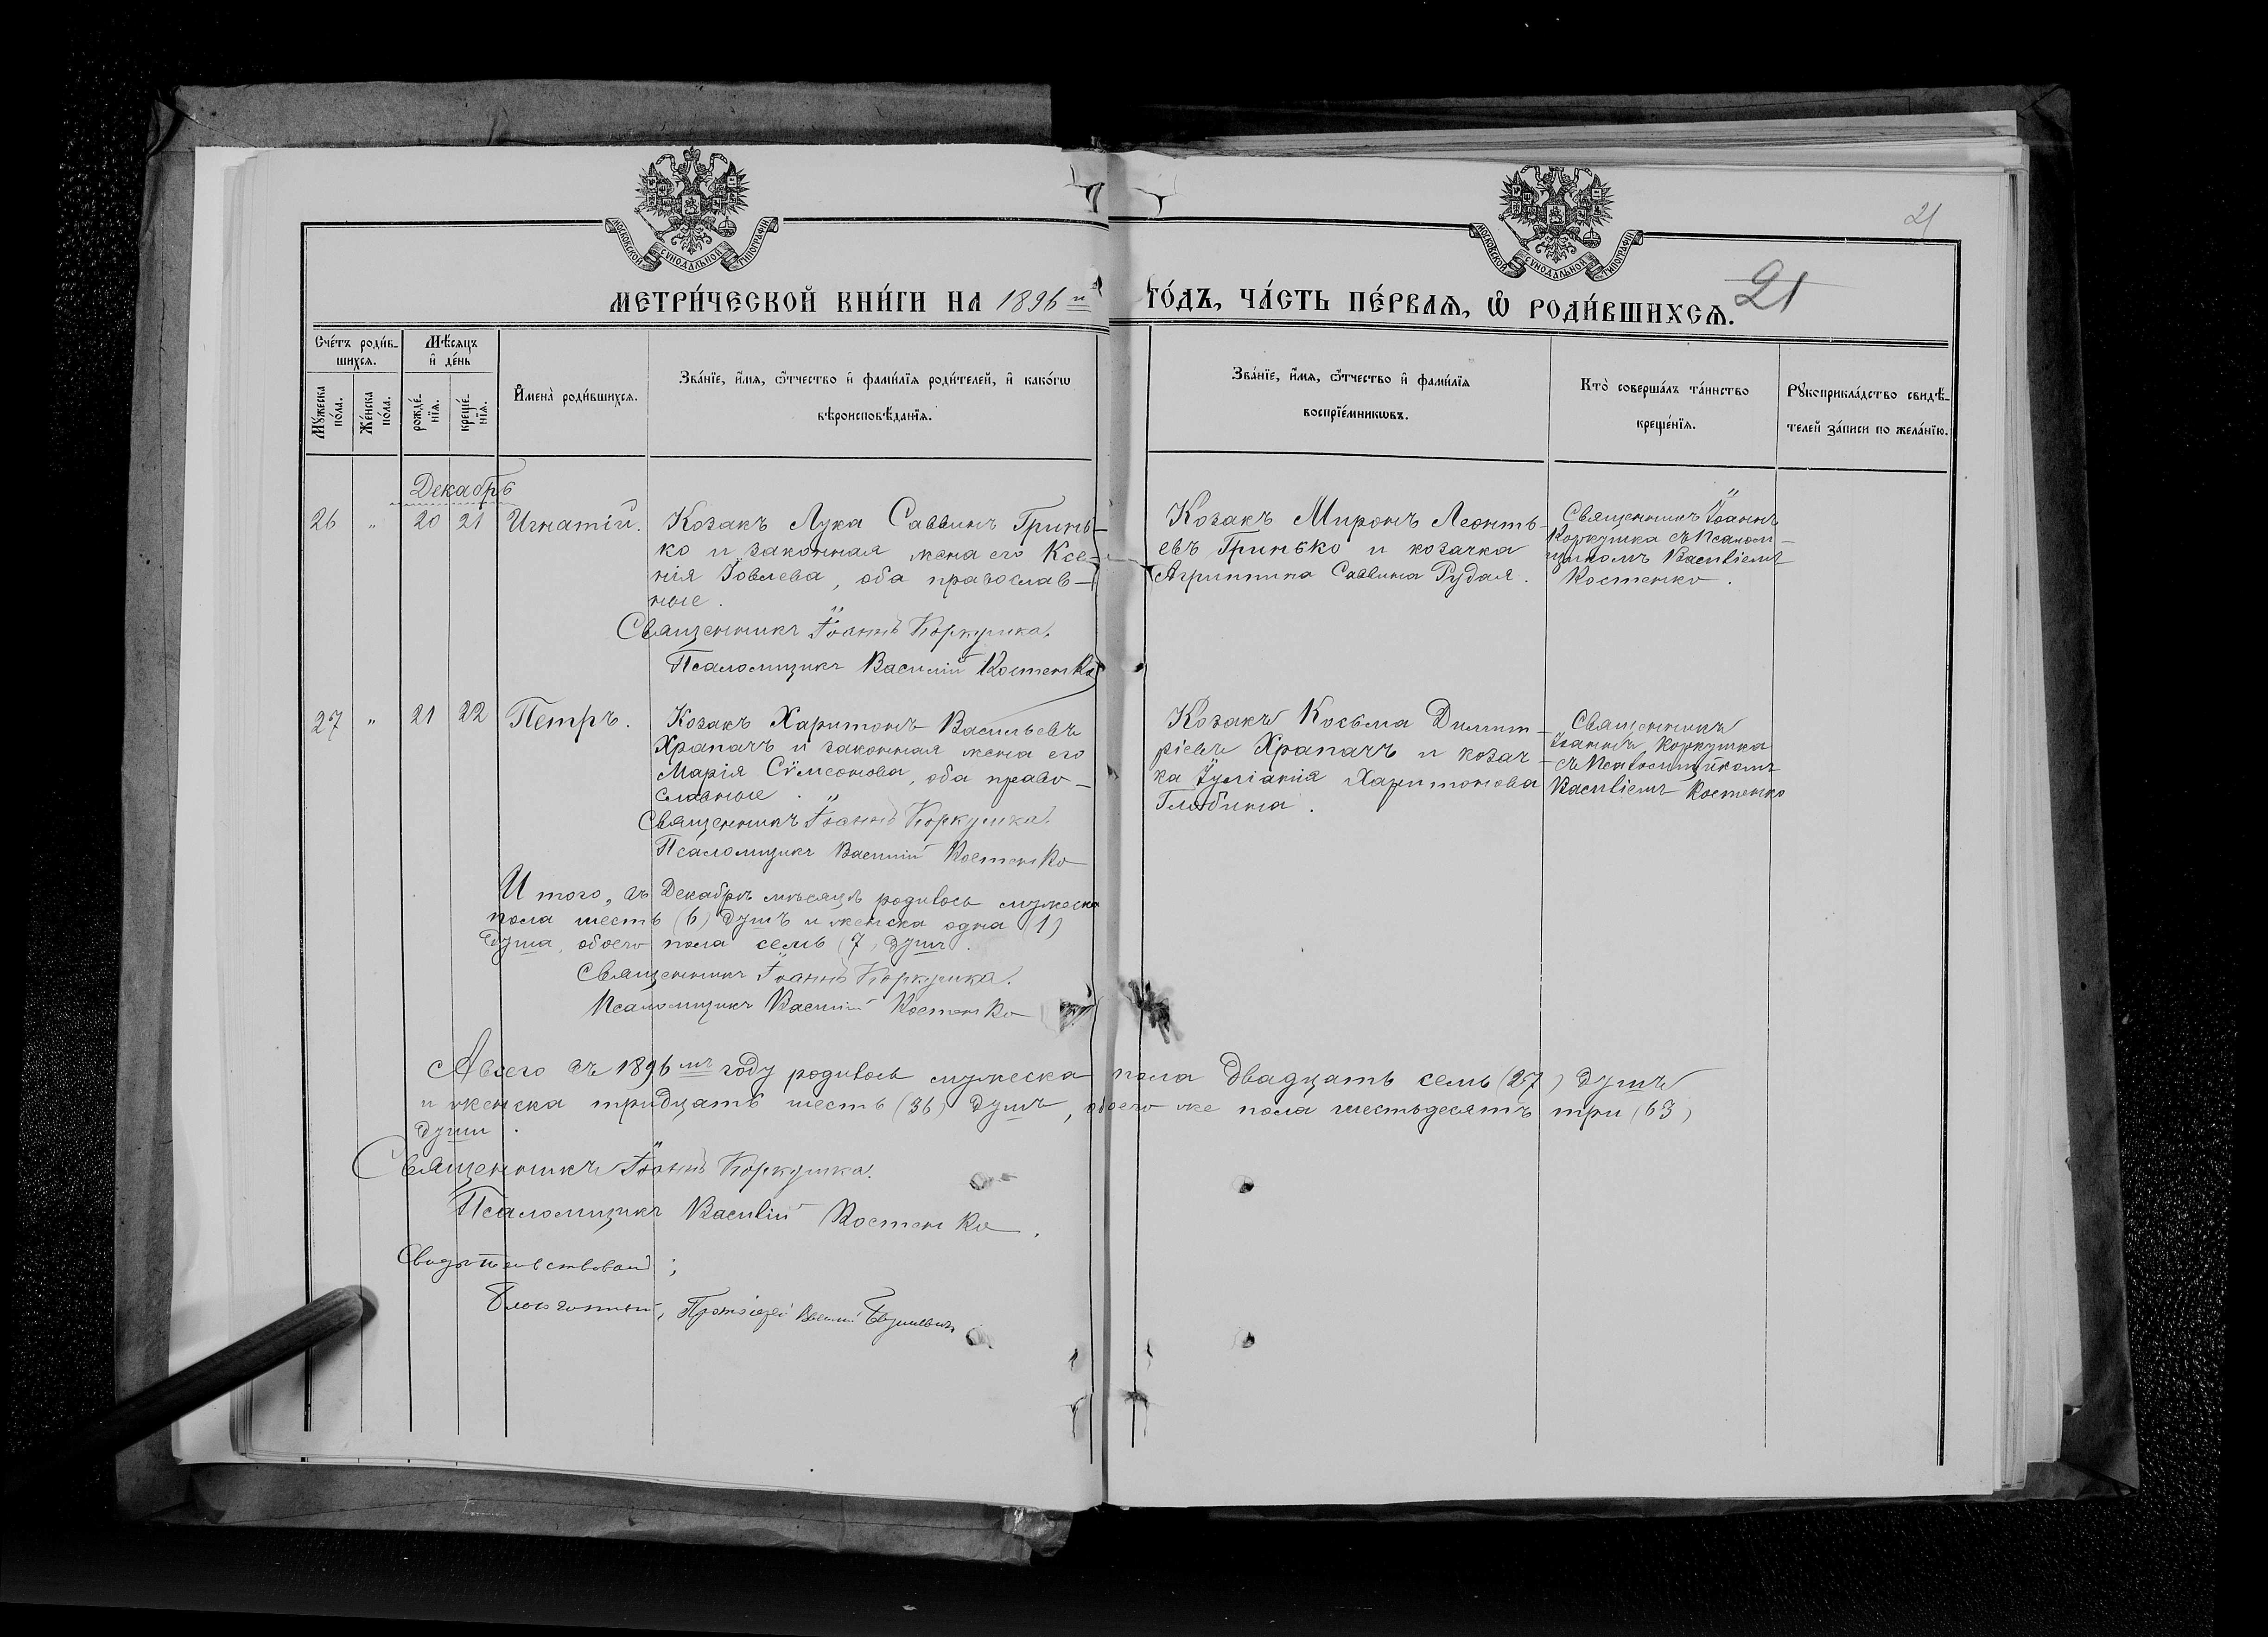 МОСКОВСКОЙ СѴНОДАЛЬНОЙ ТИПОГРАФІИ
МОСКОВСКОЙ СѴНОДАЛЬНОЙ ТИПОГРАФІИ
21
МЕТРИ́ЧЕСКОЙ КНИ́ГИ НА 1896 й ГО́ДЪ, ЧА́СТЬ ПЕ́РВАѦ, Ѡ РОДИ́ВШИХСѦ.
21
Сче́тъ роди́в-
шихсѧ.
Мѣ́сѧцъ
и҆ де́нь
Мꙋ́жеска
по́ла.
Же́нска
по́ла.
рожде́-
нїѧ.
креще́-
нїѧ.
И҆мена̀ роди́вшихсѧ.
Зва́нїе, и҆́мѧ, ѻ҆́тчество и҆ фами́лїѧ роди́телей, и҆ како́гѡ
вѣроисповѣ́данїѧ.
Зва́нїе, и҆́мѧ, ѻ҆́тчество и҆ фами́лїѧ
воспрїе́мникѡвъ.
Кто̀ соверша́лъ та́инство
креще́нїѧ.
Рꙋкоприкла́дство свидѣ́-
телей за́писи по жела́нїю.
Декабрь
26 " 20 21 Игнатій.
Козакъ Лука Саввинъ Гринь-
ко и законная жена его Ксе-
нія Іовлева, оба православ-
ные.
Священникъ Іоаннъ Коркушка.
Псаломщикъ Василій Костенко
Козакъ Миронъ Леонть-
евъ Гринько и козачка
Агриппина Саввина Рудая.
Священникъ Іоаннъ
Коркушка съ Псалом-
щикомъ Василіемъ
Костенко.
27 " 21 22 Петръ.
Козакъ Харитонъ Васильевъ
Храпачъ и законная жена его
Марія Сѵмеонова, оба право-
славные.
Священникъ Іоаннъ Коркушка.
Псаломщикъ Василій Костенко
Козакъ Косьма Димит-
ріевъ Храпачъ и козач-
ка Іуліанія Харитонова
Глобина.
Священникъ
Іоаннъ Коркушка
съ Псаломщикомъ
Василіемъ Костенко
Итого, въ Декабрѣ мѣсяцѣ родилось мужеска
пола шесть (6) душъ и женска одна (1)
душа, обоего пола семь (7) душъ.
Священникъ Іоаннъ Коркушка.
Псаломщикъ Василій Костенко
А всего въ 1896 мъ году родилось мужеска пола двадцать семь (27) душъ
и женска тридцать шесть (36) душъ, обоего же пола шестьдесятъ три (63)
души.
Священникъ Іоаннъ Коркушка.
Псаломщикъ Василій Костенко.
Свидѣтельствовалъ:
Благочинный, Протоіерей Василій